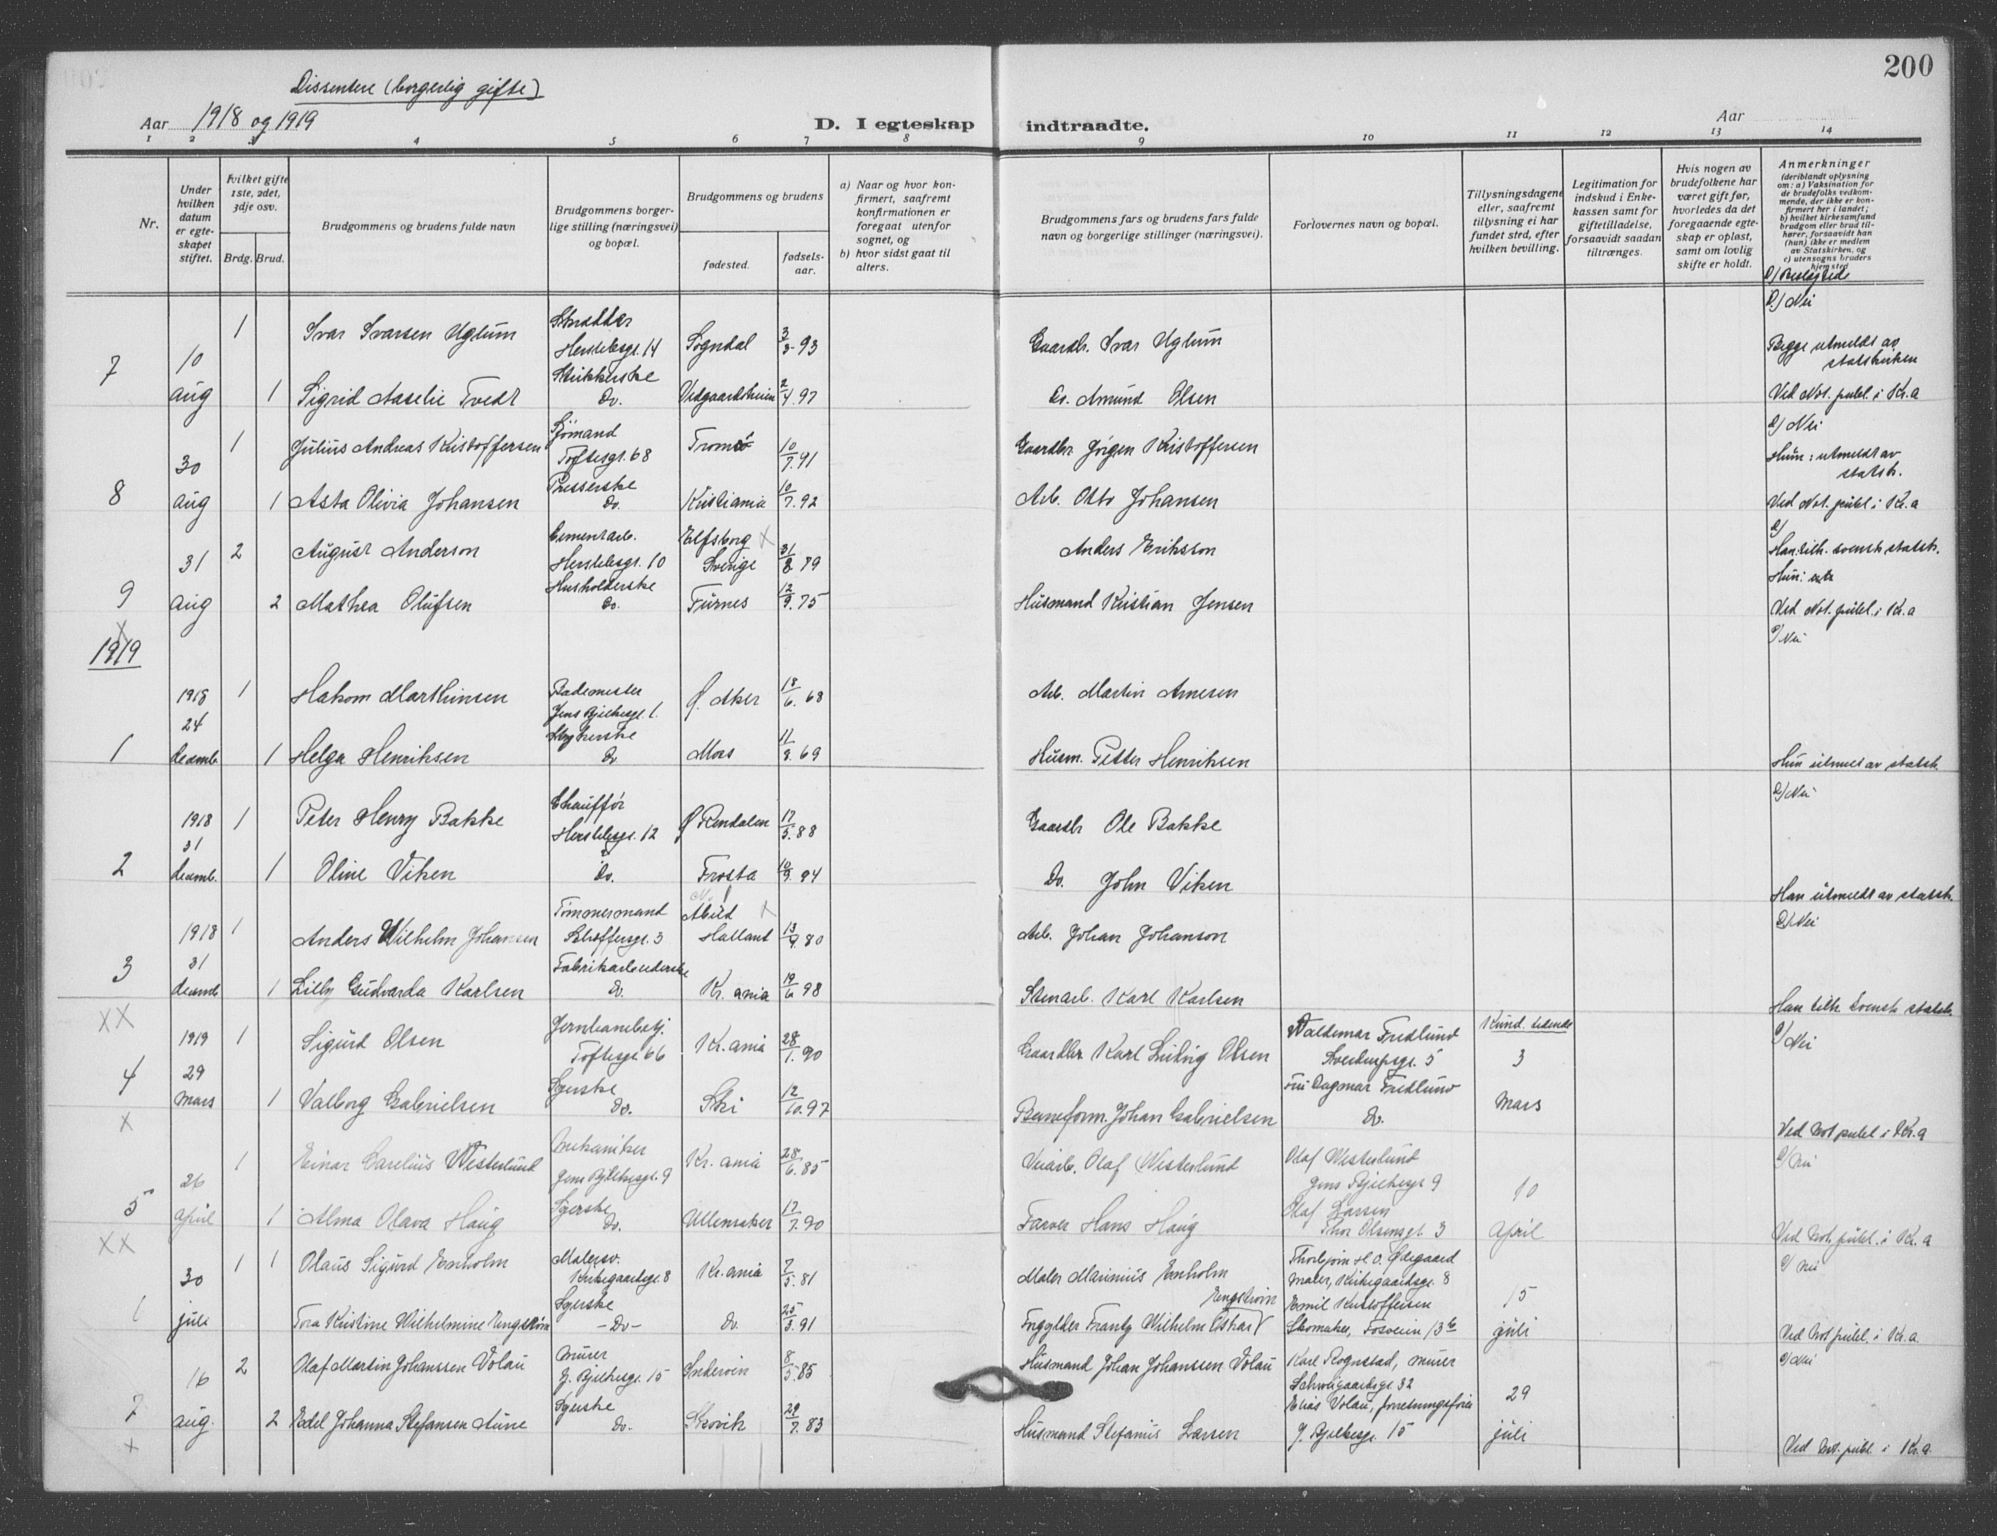 200
Dissentere (borgerlig gifte)
Aar 1918 og 1919
D. I egteskap indtraadte.
Aar
1 2 3 4 5 6 7 8 9 10 11 12 13 14
Nr.
Under hvilken datum er egteskapet stiftet.
Hvilket gifte 1ste, 2det, 3dje osv.
Brdg. Brud.
Brudgommens og brudens fulde navn
Brudgommens borgerlige stilling (næringsvei) og bopæl.
Brudgommens og brudens
fødested.
fødselsaar.
a) Naar og hvor konfirmert, saafremt konfirmationen er foregaat utenfor sognet, og
b) hvor sidst gaat til alters.
Brudgommens fars og brudens fars fulde navn og borgerlige stillinger (næringsvei).
Forlovernes navn og bopæl.
Tillysningsdagene eller, saafremt tillysning ei har fundet sted, efter hvilken bevilling.
Legitimation for indskud i Enkekassen samt for giftetilladelse, forsaavidt saadan tiltrænges.
Hvis nogen av brudefolkene har været gift før, hvorledes da det foregaaende egteskap er opløst, samt om lovlig skifte er holdt.
Anmerkninger
(deriblandt oplysning om: a) Vaksination for de brudefolks vedkommende, der ikke er konfirmert her i landet; b) hvilket kirkesamfund brudgom eller brud tilhører, forsaavidt han (hun) ikke er medlem av Statskirken, og c) utensogns bruders hjemsted
Nei
7 10 1 Ivar Ivarsen Uglum Skrædder Herslebsgt. 14 Sogndal 3/3 93 Gaardbr. Ivar Uglum Begge utmeldt av statskirken
aug 1 Sigrid Aaselie Tvedt Strikkerske Do. Vedgaardsheien 2/4 97 Do. Amund Olsen Ved Not. publ. i Kr.a
Nei
8 30 1 Julius Andreas Kristoffersen Sjømand Toftesgt. 68 Tromsø 10/7 91 Gaardbr Jørgen Kristoffersen Hun: utmeldt av statsk.
aug 1 Asta Olivia Johansen Presserske Do. Kristiania 10/7 92 Arb. Otto Johansen Ved Not. publ. i Kr.a
9 31 2 August Anderson Cementarb. Herslebsgt. 10 Elfsborg X Sverige 31/8 79 Anders Eriksson Han tilh. svensk statsk.
Hun:
aug 2 Mathea Olufsen Husholderske Do. Furnes 12/9 75 Husmand Kristian Jensen Ved Not. publ. i Kr.a
X
1919
Nei
1918 1 Hakom Marthinsen Bademester Jens Bjelkesgt. 1. Ø. Aker 18/6 68 Arb. Martin Arnesen
24
1 decemb. 1 Helga Henriksen Strykerske Do Moss 11/8 69 Husm. Petter Henriksen Hun utmeldt av statsk.
Nei
1918 1 Peter Henry Bakke Chauffør Herslebsgt. 12 Ø Rendalen 17/5 88 Gaardbr Ole Bakke
31
2 decemb. 1 Oline Viken Do. Frosta 10/9 94 Do. John Viken Han utmeldt av statsk.
Nei
1918 1 Anders Wilhelm Johansen Tømmermand 3 X Halland 13/9 80 Arb. Johan Johanson
31
3 decemb 1 Lilly Gudvarda Karlsen Fabrikarbeiderske Do. Kr.ania 19/6 98 Stenarb. Karl Karlsen Han tilh. svensk statsk.
XX
Nei
1919 1 Sigurd Olsen Jernbanebetj. Toftesgt. 66 Kr.ania 28/1 90 Gaardbr Karl Ludvig Olsen Waldemar Fredlund Sverdrupsgt. 5 Kund. tidende 3
4 29
mars 1 Valborg Gabrielsen Syerske Do. Ski 12/10 97 Baneform. Johan Gabrielsen Fru Dagmar Fredlund Do. Mars Ved Not publ i Kr.a
X
Nei
1 Einar Carelius Westerlund Mekaniker Jens Bjelkesgt. 9 Kr.ania 28/6 85 Veiarb. Olaf Westerlund Olaf Westerlund Jens Bjelkesgt 9 10
5 26
april 1 Alma Olava Haug Syerske Do. Ullensaker 17/7 90 Farver Hans Haug Olaf Larsen Thor Olsensgt. 3 April Ved Not. publ. i Kr.a
XX
Nei
30 1 1 Olaus Sigurd Enholm Malersv. Kirkegaardsgt. 8 Kr.ania 7/5 81 Maler Marinius Enholm Thorbjørn H. O. Ødegaard Maler, Kirkegaardsgt. 8 15
1 juli Tora Kristine Wilhelmine Engstrøm Syerske -Do- Do. 25/3 91 Forgylder Frantz Wilhelm Oskar Engstrøm Emil Kristoffersen Skomaker, Fosveien 13b juli Ved Not publ. i Kr.a
Nei
16 2 Olaf Martin Johanssen Volau Murer J. Bjelkesgt. 15 Inderøin 8/5 85 Husmand Johan Johanssen Volau Karl Rognstad, murer Schweigaardsgt 32 29
2 aug. 2 Edel Johanna Stefansen Aune Syerske Do. Skovik 29/7 83 Husmand Stefanus Larsen Elias Volau, forretningsfører J. Bjelkesgt. 15 juli Ved Not. publ. i Kr.a
X